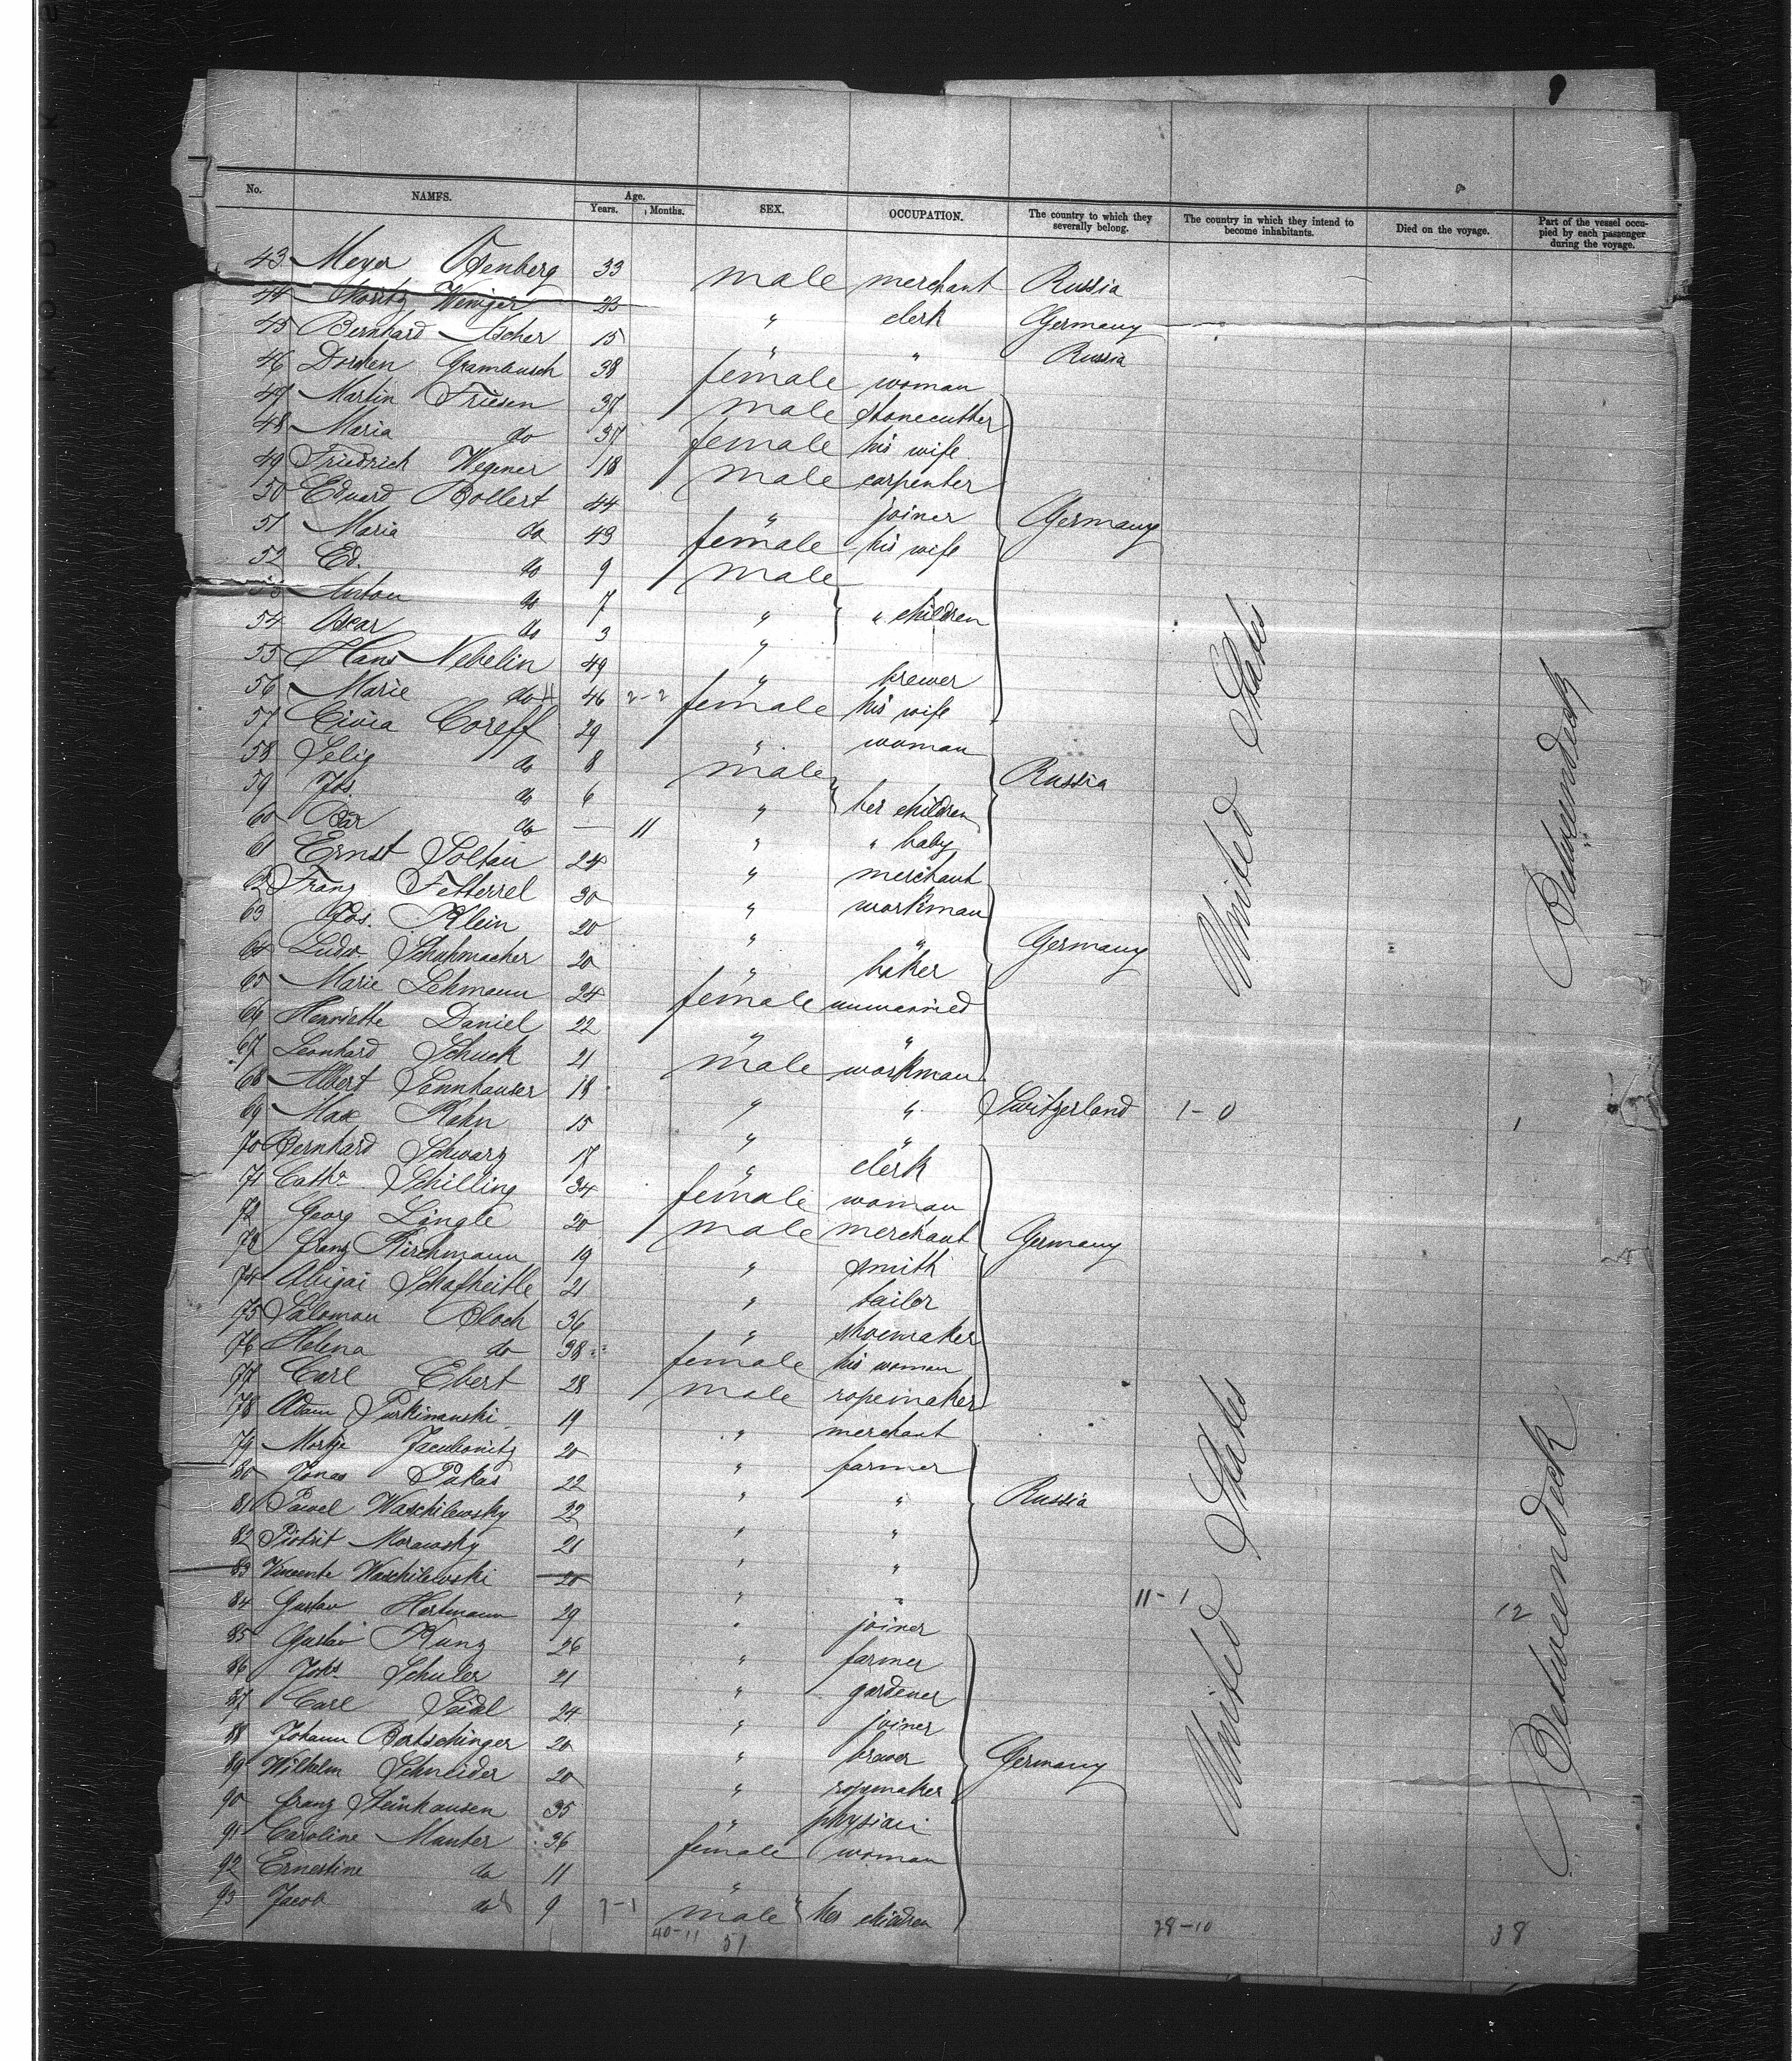 No. NAMES. Age. Years. Months. SEX. OCCUPATION. The country to which they severally belong. The country in which they intend to become inhabitants. Died on the voyage. Part of the vessel occupied by each passenger during the voyage.
43 Meyer 33 male merchant Russia
44 Moritz Weniger 23 " clerk Germany
45 Bernhard Ascher 15 " " Russia
46 38 female woman
47 Martin Friesen 37 male stonecutter
48 Maria do 37 female his wife
49 Friedrich Wegener 18 male carpenter
50 Eduard Bollert 44 " joiner Germany
51 Maria do 43 female his wife
52 Ed. do 9 male
53 Anton do 7 " " children
54 Oscar do 3 "
55 Hans Nebelin 49 " brewer
56 Marie do 46 2-2 female his wife
57 Civia Coreff 29 " woman
58 Selig do 8 male Russia
59 Jos. do 6 " her children
60 Bär do — 11 " " baby
61 Ernst Soltau 24 " merchant
62 Franz Fetterrel 30 " workman
63 Jos. Klein 20 " " Germany
64 Ludw. Schuhmacher 20 " baker
65 Marie Lehmann 24 female unmarried
66 Henriette Daniel 22 " "
67 Leonhard Schuck 21 male workman
68 Albert Sennhauser 18 " " Switzerland 1-0 1
69 Max Kahn 15 " "
70 Bernhard Schwarz 17 " clerk
71 Catha Schilling 34 female woman
72 Georg Längle 20 male merchant Germany
73 Franz Kirchmann 19 " smith
74 Abigai Schafheitle 21 " tailor
75 Salomon Bloch 36 " shoemaker
76 Helena do 38 female his woman
77 Carl Ebert 28 male ropemaker
78 Adam 19 " merchant
79 20 " farmer
80 Jonas Pakas 22 " " Russia
81 Pawel Waschilewsky 22 " "
82 Morawsky 21 " "
83 Vincente Waschilewski 20 " " 11-1
84 Gustav Hartmann 29 " joiner 12
85 Gustav Kunz 26 " farmer
86 Johs. Schuler 21 " gardener
87 Carl Seidl 24 " joiner
88 Johann Bertschinger 20 " brewer Germany
89 Wilhelm Schneider 20 " ropemaker
90 Franz Steinhausen 35 " physian
91 Caroline Munter 36 female woman
92 Ernestine do 11 "
93 Jacob do 9 male her children
40-11 51 28-10 38
United States
United States
Betweendeck
Betweendeck